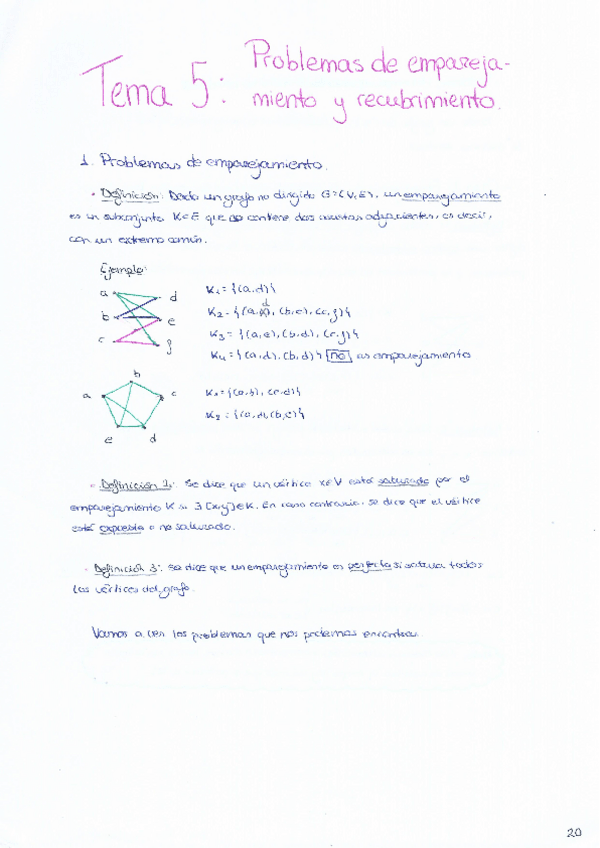 Tema 5: Problemas de empareja-
miento y recubrimiento.
1. Problemas de emparejamiento.
• Definición: Dado un grafo no dirigido G=(V,E), un emparejamiento
es un subconjunto K⊂E que no contiene dos aristas adyacentes, es decir,
con un extremo común.
Ejemplo:
a d
b e
c f
K₁ = {(a,d)}
K₂ = {(a,d), (b,e), (c,f)}
K₃ = {(a,e), (b,d), (c,f)}
K₄ = {(a,d), (b,d)} no es emparejamiento
b
a c
e d
K₁ = {(a,b), (c,d)}
K₂ =
- Definición 2: Se dice que un vértice x∈V está saturado por el
emparejamiento K si ∃ [x,y]∈K. En caso contrario, se dice que el vértice
está expuesto o no saturado.
- Definición 3: Se dice que un emparejamiento es perfecto si satura todos
los vértices del grafo.
Vamos a ver los problemas que nos podemos encontrar.
20